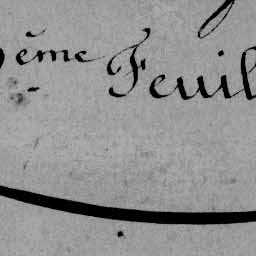 ème Feuil